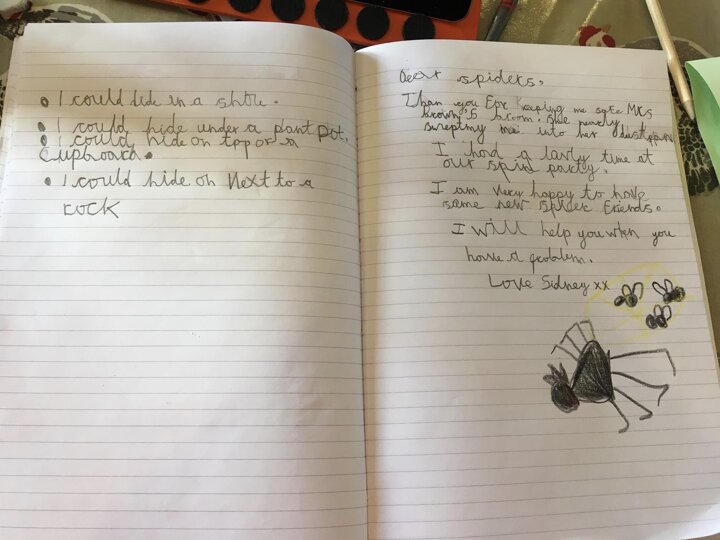 I could hide in a shoe.
I could hide under a plant pot.
I could hide on top of a
cupboard.
I could hide on Next to a
rock
Dear spiders,
Than you For keeping me safe Mrs
brown's broom. She nearly
sweeping me into her dustpan.
I had a lavly time at
our party.
I am very happy to have
some new spider friends.
I will help you when you
have a problem.
Love Sidney xx